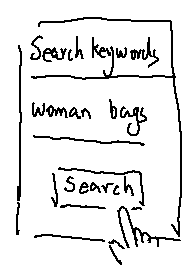 Search keywords
woman bags
Search